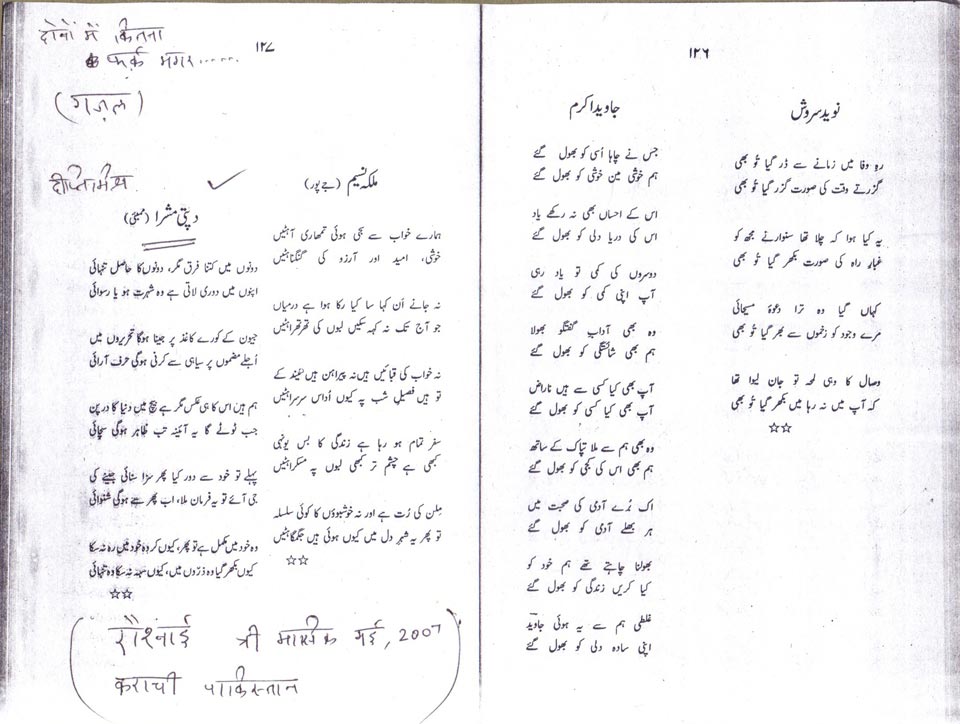 ۱۲۶
نوید سروش
رہِ وفا میں زمانے سے ڈر گیا تُو بھی
گزرتے وقت کی صورت گزر گیا تُو بھی
یہ کیا ہوا کہ چلا تھا سنوارنے مجھ کو
غبارِ راہ کی صورت بکھر گیا تُو بھی
کہاں گیا وہ ترا دعوۂ مسیحائی
مرے وجود کو زخموں سے بھر گیا تُو بھی
وصال کا وہی لمحہ تو جان لیوا تھا
کہ آپ میں نہ رہا میں بکھر گیا تُو بھی
☆☆
جاوید اکرم
جس نے چاہا اُسی کو بھول گئے
ہم خوشی میں خوشی کو بھول گئے
اس کے احساں بھی نہ رکھے یاد
اس کی دریا دلی کو بھول گئے
دوسروں کی کمی تو یاد رہی
آپ اپنی کمی کو بھول گئے
وہ بھی آدابِ گفتگو بھولا
ہم بھی شائستگی کو بھول گئے
آپ بھی کیا کسی سے ہیں ناراض
آپ بھی کیا کسی کو بھول گئے
وہ بھی ہم سے ملا تپاک کے ساتھ
ہم بھی اس کی کجی کو بھول گئے
اک بُرے آدمی کی صحبت میں
ہر بھلے آدمی کو بھول گئے
بھولنا چاہتے تھے ہم خود کو
کیا کریں زندگی کو بھول گئے
غلطی ہم سے یہ ہوئی جاوید
اپنی سادہ دلی کو بھول گئے
۱۲۷
दोनों में कितना
फर्क़ मगर......
(ग़ज़ल)
ملکہ نسیم (جے پور)
ہمارے خواب سے سجی ہوئی تمھاری آہٹیں
خوشی، امید اور آرزو کی گنگناہٹیں
نہ جانے اَن کہا سا کیا رکا ہوا ہے درمیاں
جو آج تک نہ کہہ سکیں لبوں کی تھرتھراہٹیں
نہ خواب کی قبائیں ہیں نہ پیراہن ہیں نیند کے
تو ہیں فصیلِ شب پہ کیوں اُداس سرسراہٹیں
سفر تمام ہو رہا ہے زندگی کا بس یونہی
کبھی ہے چشم تر کبھی لبوں پہ مسکراہٹیں
مِلن کی رُت ہے اور نہ خوشبوؤں کا کوئی سلسلہ
تو پھر یہ شہرِ دل میں کیوں ہوئی ہیں جگمگاہٹیں
☆☆
दीप्ति मिश्र
دپتی مشرا (ممبئی)
دونوں میں کتنا فرق مگر، دونوں کا حاصل تنہائی
اپنوں میں دوری لاتی ہے وہ شہرت ہو یا رسوائی
جیون کے کورے کاغذ پر جینا ہوگا تحریروں میں
اُجلے مضموں پر سیاہی سے کرنی ہوگی حرف آرائی
ہم ہیں اس کا ہی عکس مگر ہے سچ میں دنیا کا درپن
جب ٹوٹے گا یہ آئینہ تب ظاہر ہوگی سچائی
پہلے تو خود سے دور کیا پھر سزا سنائی جینے کی
جی آئے تو یہ فرمان ملا، اب پھر سے ہوگی شنوائی
وہ خود میں مکمل ہے تو پھر، کیوں کر وہ خود میں رہ نہ سکا
کیوں بکھر گیا وہ ذرّوں میں، کیوں سہہ نہ سکا وہ تنہائی
☆☆
(रौशनाई त्री मासिक मई, 2007
कराची पाकिस्तान)